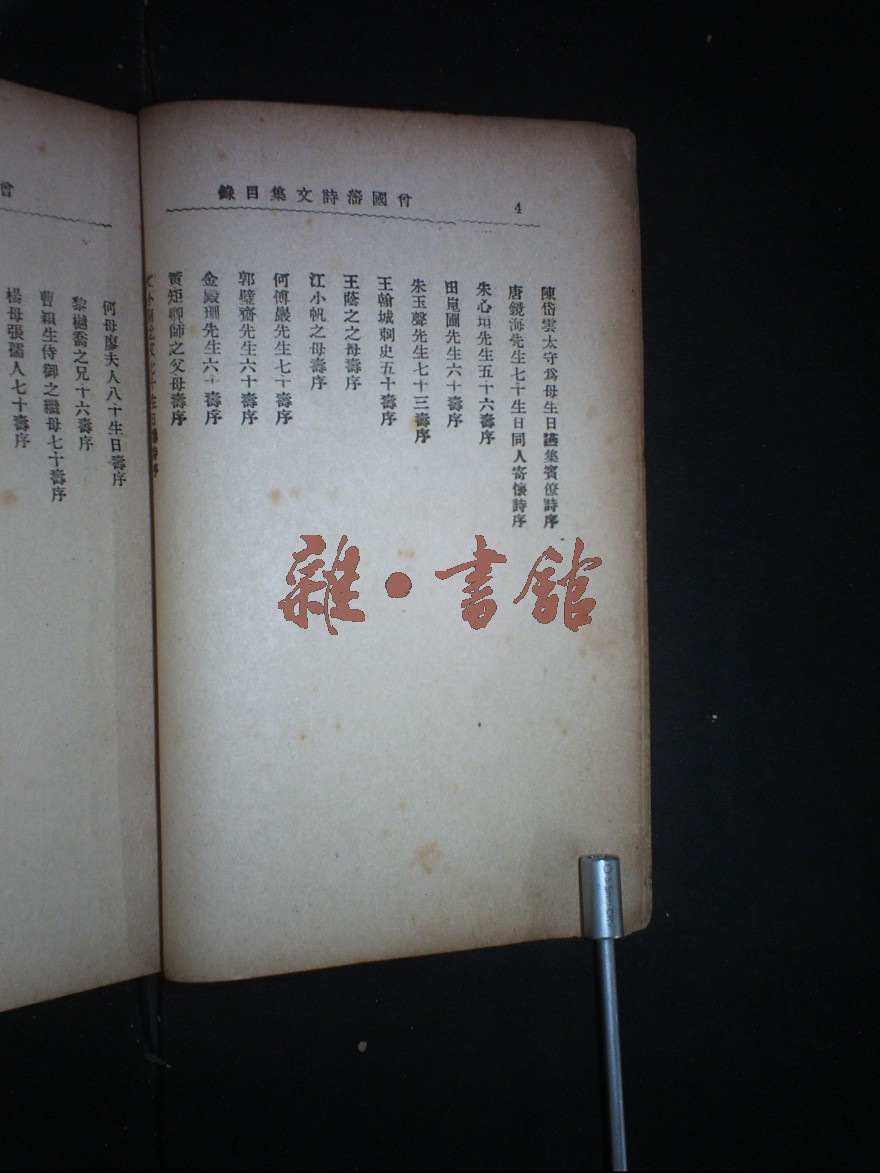 曾國藩詩文集目錄
4
陳岱雲太守爲母生日讌集賓僚詩序
唐鏡海先生七十生日同人寄懷詩序
朱心垣先生五十六壽序
田崑圃先生六十壽序
朱玉聲先生七十三壽序
王翰城刺史五十壽序
王蔭之之母壽序
江小帆之母壽序
何傅巖先生七十壽序
郭璧齋先生六十壽序
金殿珊先生六十壽序
黃矩卿師之父母壽序
七十生日壽詩序
何母廖夫人八十生日壽序
黎樾喬之兄十六壽序
曹穎生侍御之繼母七十壽序
楊母張孺人七十壽序
曾
雜·書館